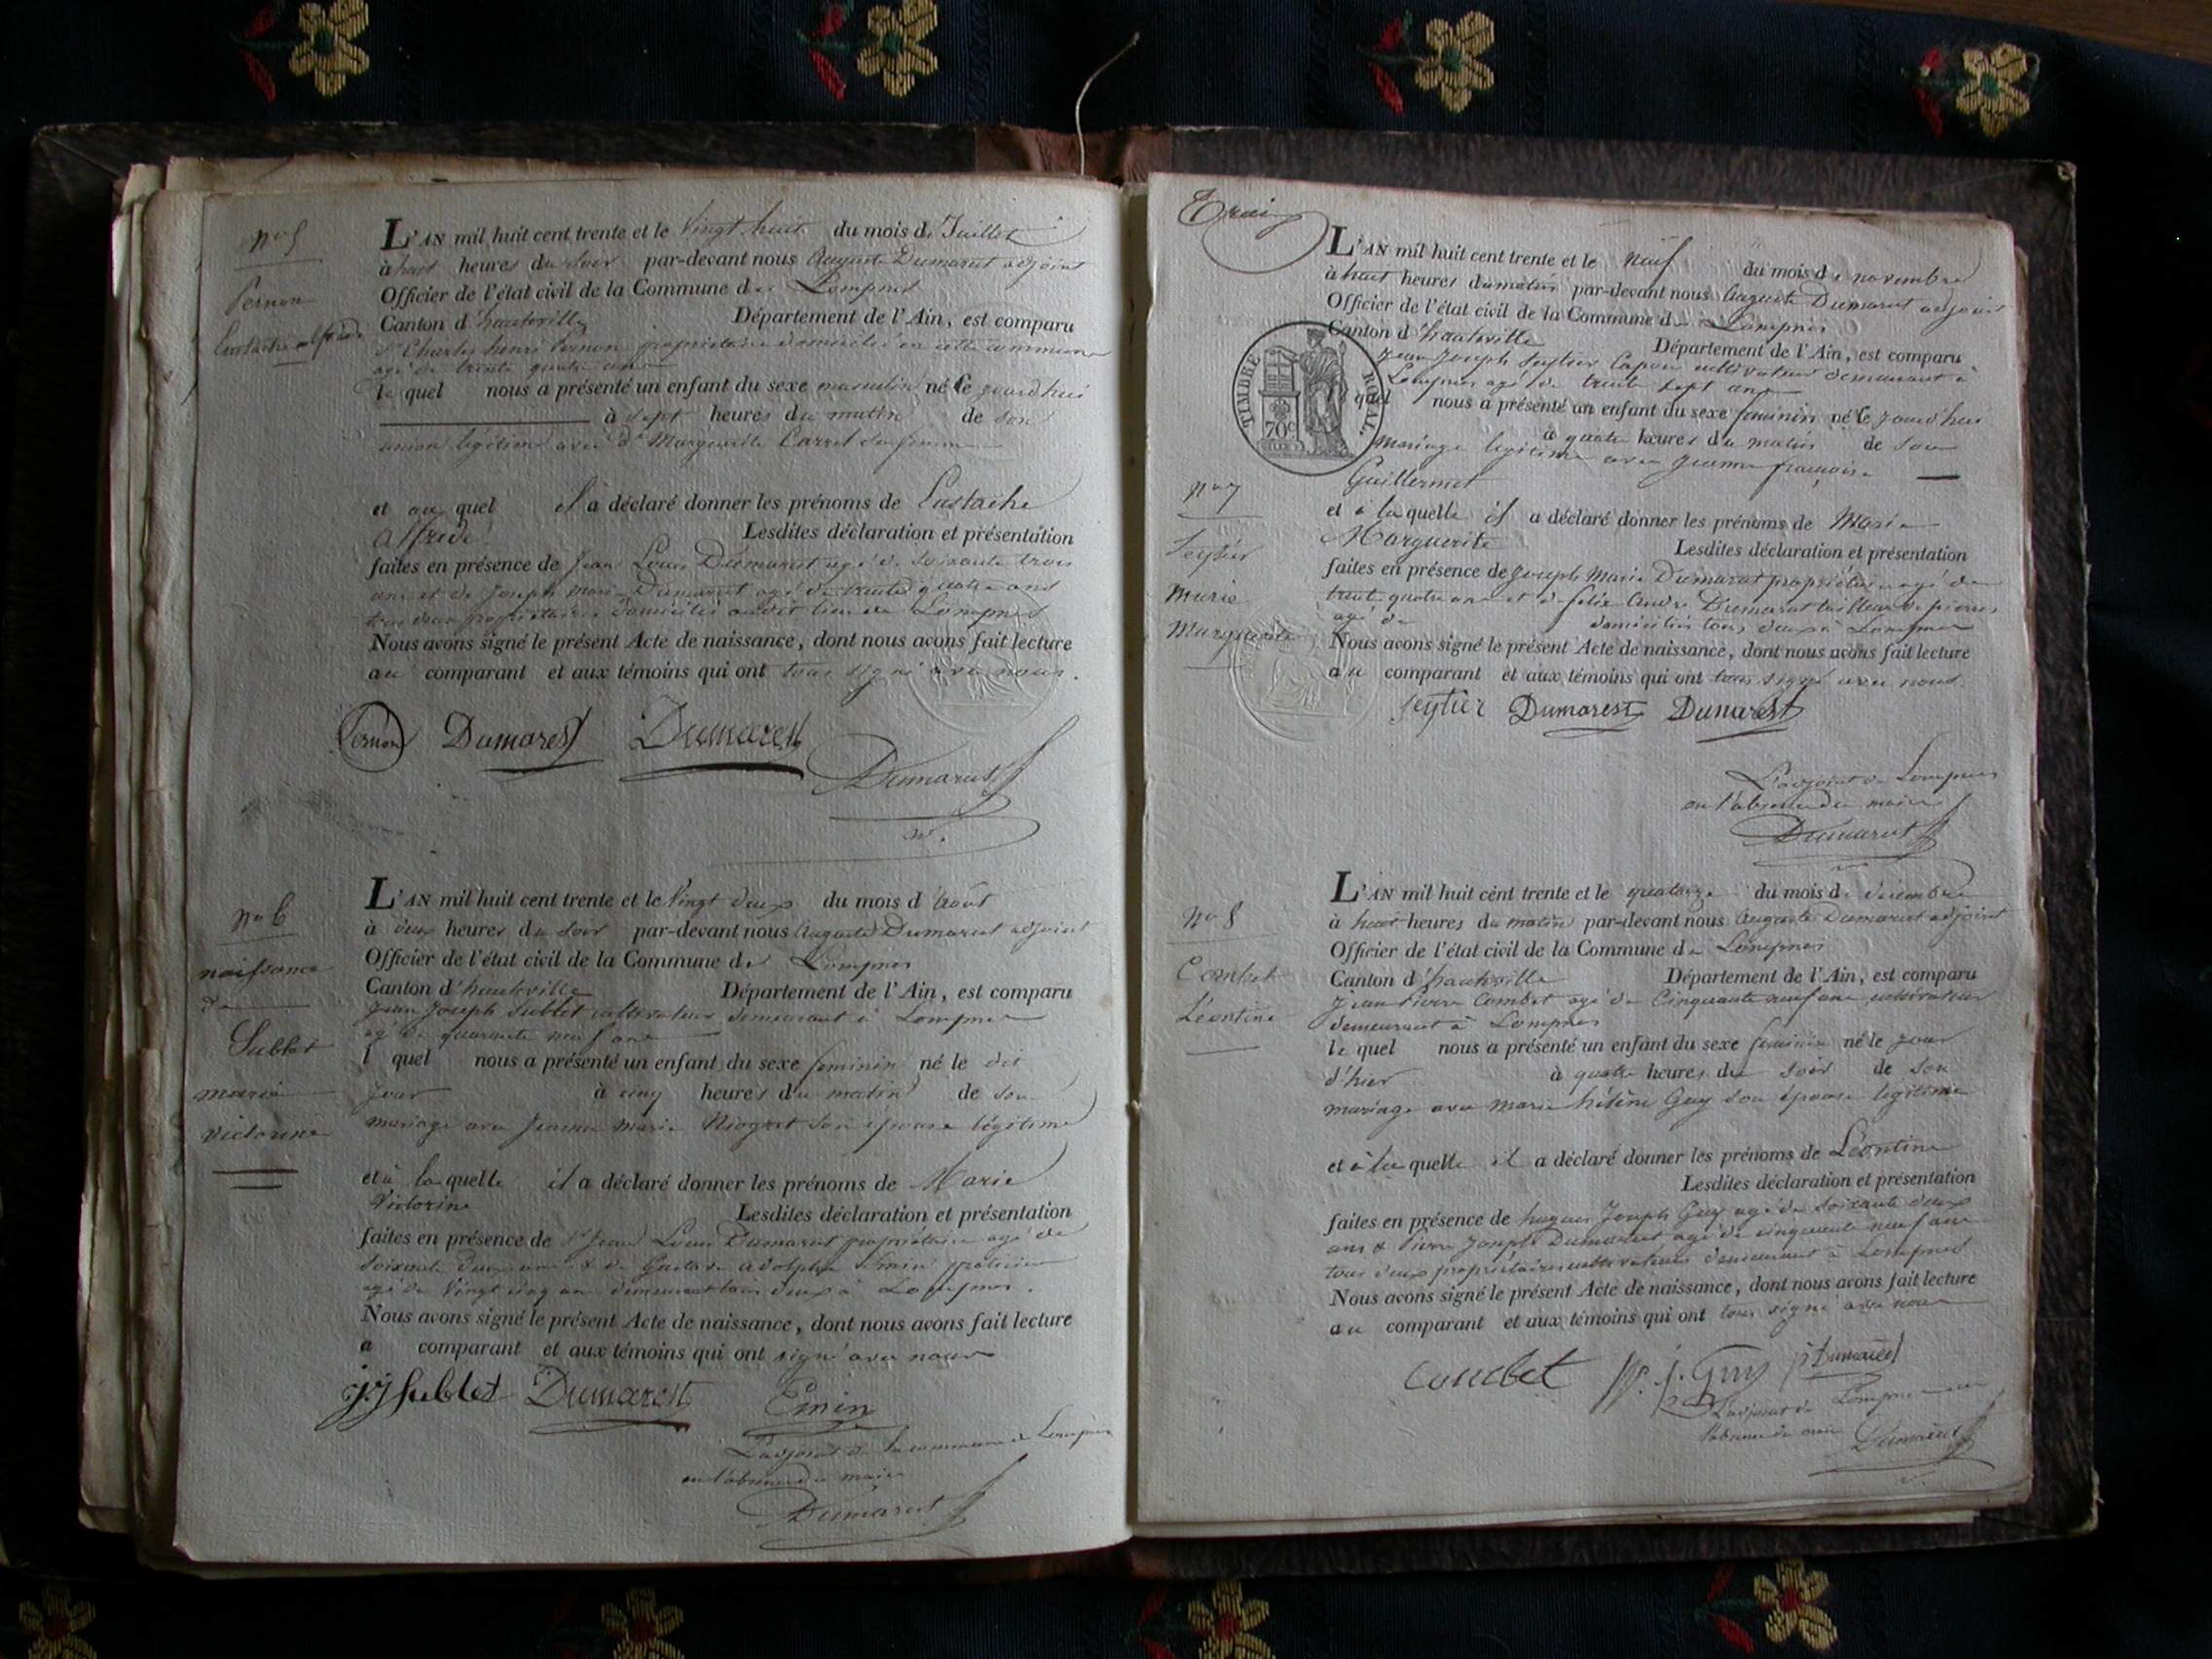 No 5
Pernon
Eustache alfrède
L'AN mil huit cent trente et le Vingt huit du mois de Juillet
à huit heures du soir par-devant nous Auguste Dumarest adjoint
Officier de l'état civil de la Commune de Lompnes
Canton d'hauteville Département de l'Ain, est comparu
Sr Charles henri Pernon propriétaire domicilié en cette commune
agé de trente quatre ans
le quel nous a présenté un enfant du sexe masculin né ce jourd'hui
à sept heures du matin de son
union légitime avec De Marguerite Carrel sa femme
et au quel il a déclaré donner les prénoms de Eustache
alfrède Lesdites déclaration et présentation
faites en présence de Jean Louis Dumarest agé de soixante trois
ans et de Joseph Marie Dumarest agé de trente quatre ans
tous deux propriétaires domiciliés audit lieu de Lompnes
Nous avons signé le présent Acte de naissance, dont nous avons fait lecture
au comparant et aux témoins qui ont tous signé avec nous.
Pernon Dumarest Dumarest
Dumarest
No 6
naissance
de
Sublet
marie
victorine
L'AN mil huit cent trente et le Vingt deux du mois d'Août
à deux heures du soir par-devant nous Auguste Dumarest adjoint
Officier de l'état civil de la Commune de Lompnes
Canton d'hauteville Département de l'Ain, est comparu
Jean Joseph Sublet cultivateur demeurant à Lompnes
agé de quarante neuf ans
l quel nous a présenté un enfant du sexe feminin né le dit
jour à cinq heures du matin de son
mariage avec Jeanne Marie Niogret son épouse légitime
et à la quelle il a déclaré donner les prénoms de Marie
Victorine Lesdites déclaration et présentation
faites en présence de Sr Jean Louis Dumarest propriétaire agé de
soixante deux ans & de Gustave Adolphe Emin praticien
agé de vingt cinq ans demeurant tous deux à Lompnes.
Nous avons signé le présent Acte de naissance, dont nous avons fait lecture
a comparant et aux témoins qui ont signé avec nous
J.J Sublet Dumarest Emin
L'adjoint de la commune de Lompnes
en l'absence du maire
Dumarest
TIMBRE ROYAL.
70c
No 7
Seytier
Marie
Marguerite
L'AN mil huit cent trente et le neuf du mois de novembre
à huit heures du matin par-devant nous Auguste Dumarest adjoint
Officier de l'état civil de la Commune de Lompnes
Canton d'hauteville Département de l'Ain, est comparu
Jean Joseph Seytier cultivateur demeurant à
Lompnes agé de trente sept ans
quel nous a présenté un enfant du sexe feminin né ce jourd'hui
à quatre heures du matin de son
mariage légitime avec Jeanne françoise
Guillermet
et à laquelle il a déclaré donner les prénoms de Marie
Marguerite Lesdites déclaration et présentation
faites en présence de Joseph Marie Dumarest propriétaire agé de
trente quatre ans et de felix André Dumarest tailleur de pierres
agé de domiciliés tous deux à Lompnes
Nous avons signé le présent Acte de naissance, dont nous avons fait lecture
au comparant et aux témoins qui ont tous signé avec nous
Seytier Dumarest Dumarest
L'adjoint de Lompnes
en l'absence du maire
Dumarest
No 8
Combet
Léontine
L'AN mil huit cent trente et le quatorze du mois de décembre
à huit heures du matin par-devant nous Auguste Dumarest adjoint
Officier de l'état civil de la Commune de Lompnes
Canton d'hauteville Département de l'Ain, est comparu
Jean Pierre Combet agé de Cinquante neuf ans cultivateur
demeurant à Lompnes
le quel nous a présenté un enfant du sexe feminin né le jour
d'hier à quatre heures du soir de son
mariage avec Marie hélène Guy son épouse légitime
et à la quelle il a déclaré donner les prénoms de Léontine
Lesdites déclaration et présentation
faites en présence de hugues Joseph Guy agé de soixante deux
ans & Pierre Joseph Dumarest agé de cinquante neuf ans
tous deux propriétaires cultivateurs demeurant à Lompnes
Nous avons signé le présent Acte de naissance, dont nous avons fait lecture
au comparant et aux témoins qui ont tous signé avec nous
Combet h. j. Guy pj Dumarest
L'adjoint de Lompnes en
l'absence du maire Dumarest